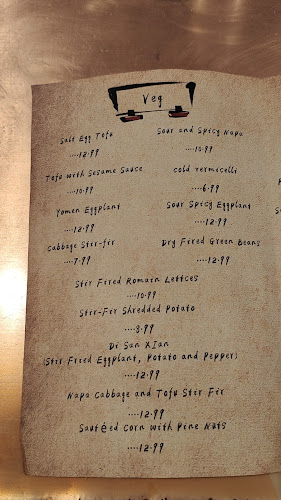 Veg
Salt Egg Tofu
....12.99
Sour and Spicy Napa
....10.99
Tofu with Sesame Sauce
....10.99
Cold Vermicelli
....6.99
Yomen Eggplant
....12.99
Sour Spicy Eggplant
....12.99
Cabbage Stir-fir
....7.99
Dry Fired Green Beans
....12.99
Stir Fired Romain Lettces
....10.99
Stir-Fir Shredded Potato
....8.99
Di San Xian
(Stir Fired Eggplant, Potato and Pepper)
....12.99
Napa Cabbage and Tofu Stir Fir
....12.99
Sautéed Corn with Pine Nuts
....12.99